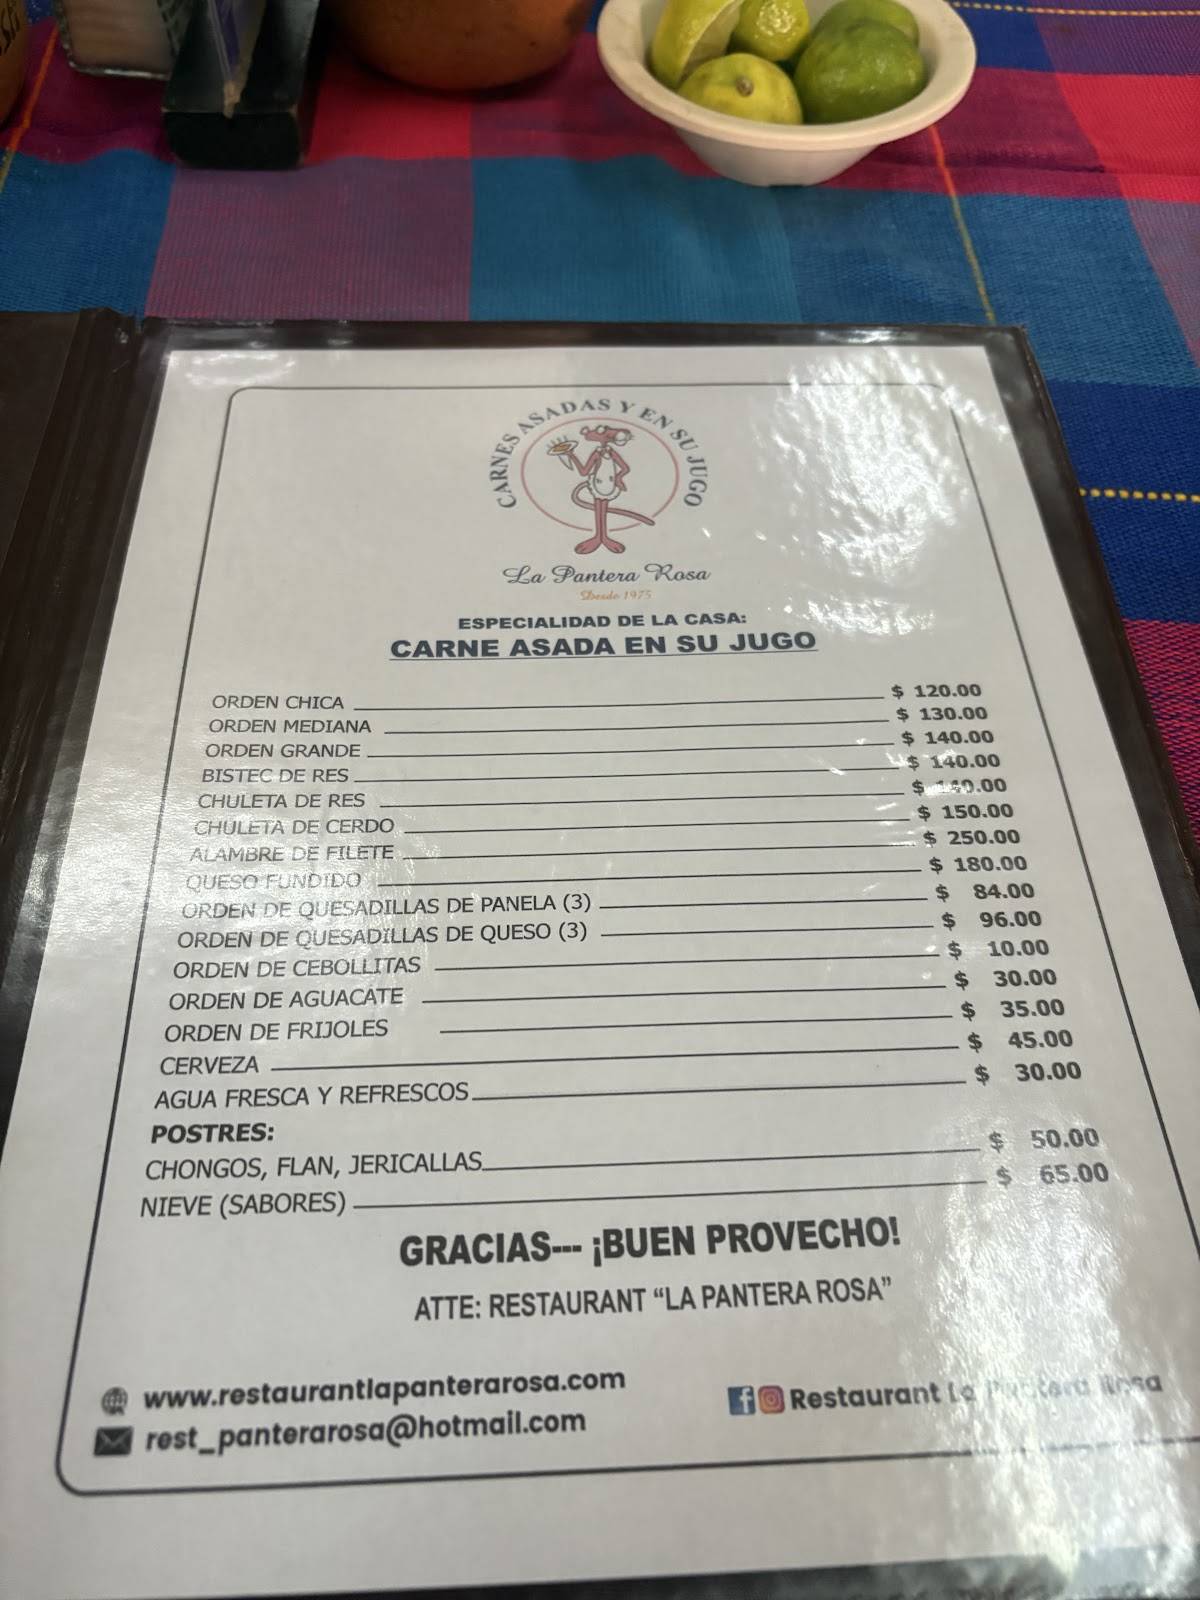 CARNES ASADAS Y EN SU JUGO
La Pantera Rosa
Desde 1975
ESPECIALIDAD DE LA CASA:
CARNE ASADA EN SU JUGO
ORDEN CHICA $ 120.00
ORDEN MEDIANA $ 130.00
ORDEN GRANDE $ 140.00
BISTEC DE RES $ 140.00
CHULETA DE RES $ 140.00
CHULETA DE CERDO $ 150.00
ALAMBRE DE FILETE $ 250.00
QUESO FUNDIDO $ 180.00
ORDEN DE QUESADILLAS DE PANELA (3) $ 84.00
ORDEN DE QUESADILLAS DE QUESO (3) $ 96.00
ORDEN DE CEBOLLITAS $ 10.00
ORDEN DE AGUACATE $ 30.00
ORDEN DE FRIJOLES $ 35.00
CERVEZA $ 45.00
AGUA FRESCA Y REFRESCOS $ 30.00
POSTRES:
CHONGOS, FLAN, JERICALLAS $ 50.00
NIEVE (SABORES) $ 65.00
GRACIAS--- ¡BUEN PROVECHO!
ATTE: RESTAURANT “LA PANTERA ROSA”
www.restaurantlapanterarosa.com
rest_panterarosa@hotmail.com
Restaurant La Pantera Rosa